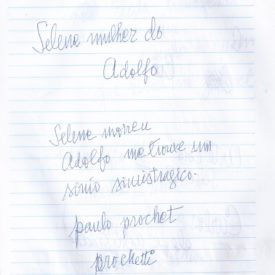 Selene mulher do
Adolfo
Selene morreu
Adolfo me trouxe um
sinio sinistragico.
paulo prochet
prochetti